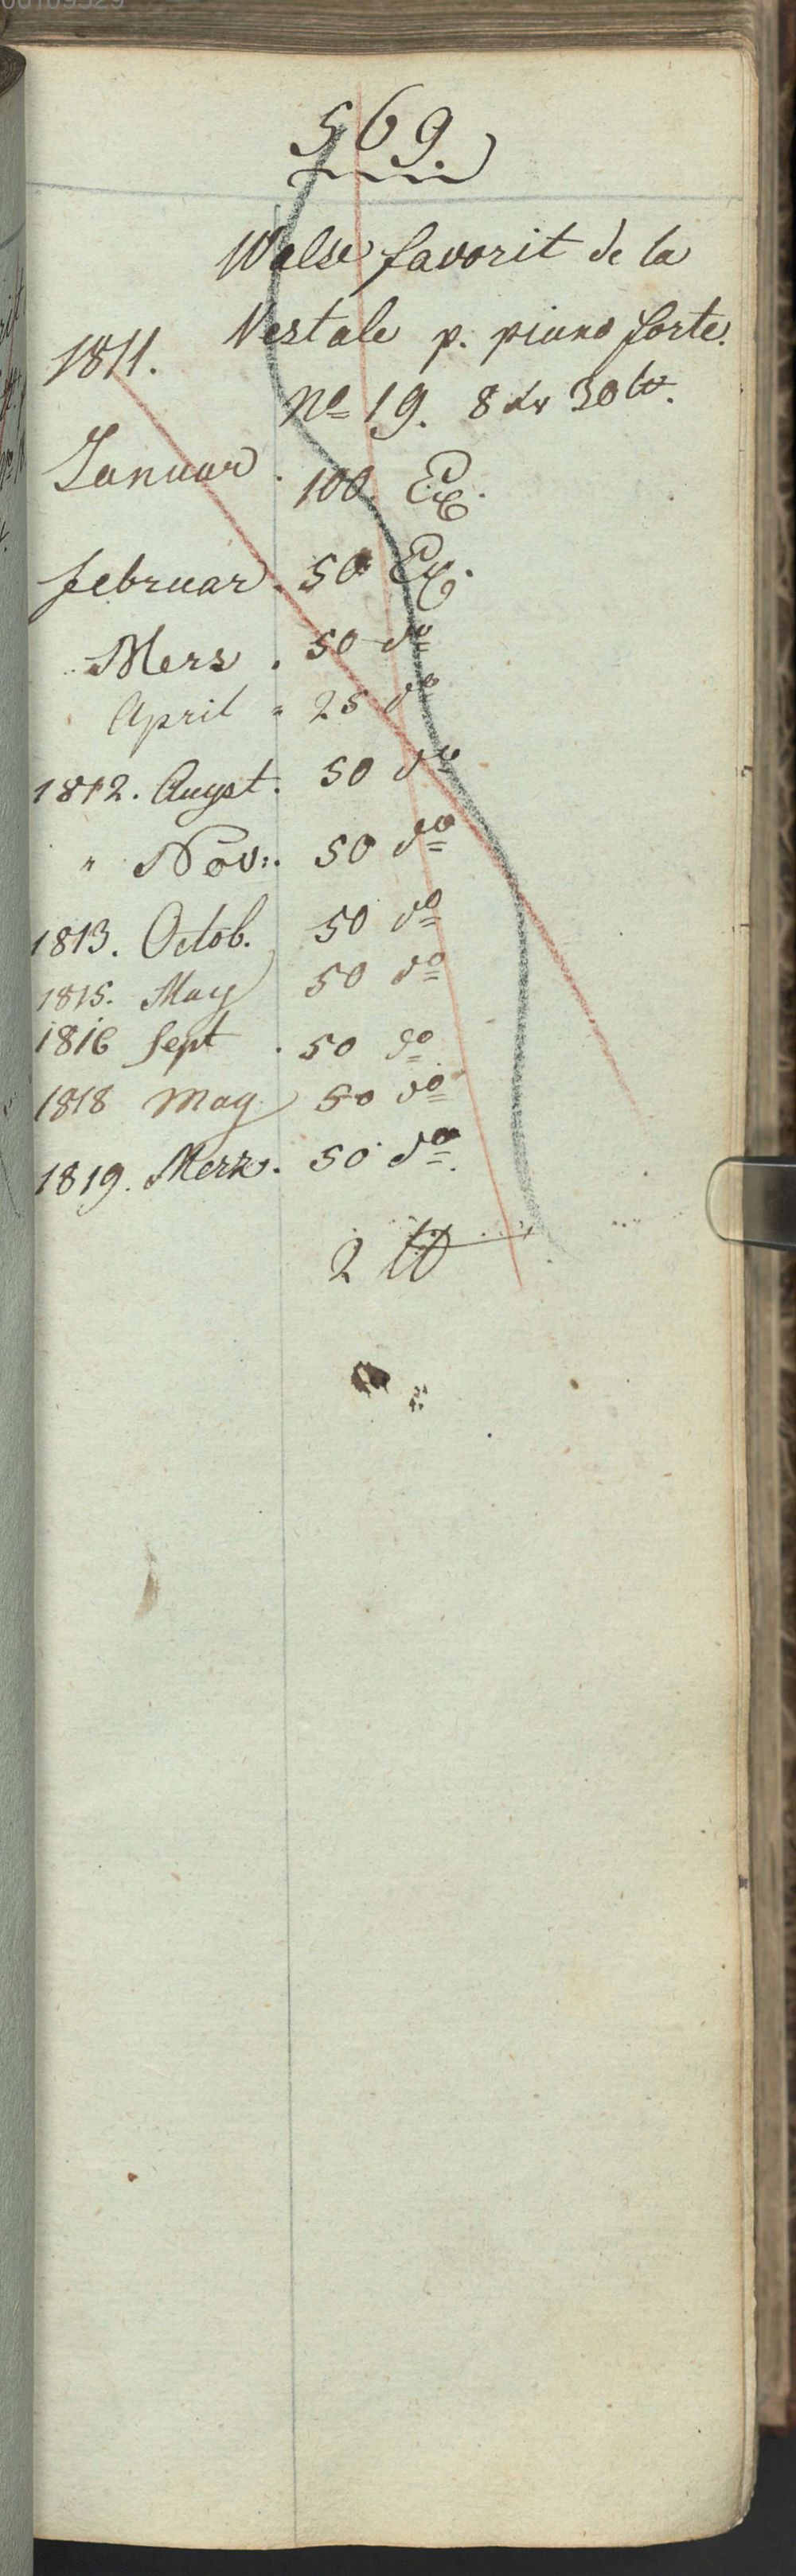 569.
Walse favorit de la
Vestale p. piano forte.
1811.
No 19. 8 xr 30 lb.
Januar. 100 Ex.
februar. 50 Ex.
Merz. 50 do
April " 25 do
1812. Augst. 50 do
" Nov:. 50 do
1813. Octob. 50 do
1815. May 50 do
1816 Sept. 50 do
1818 May 50 do
1819. Merz. 50 do.
2 lb